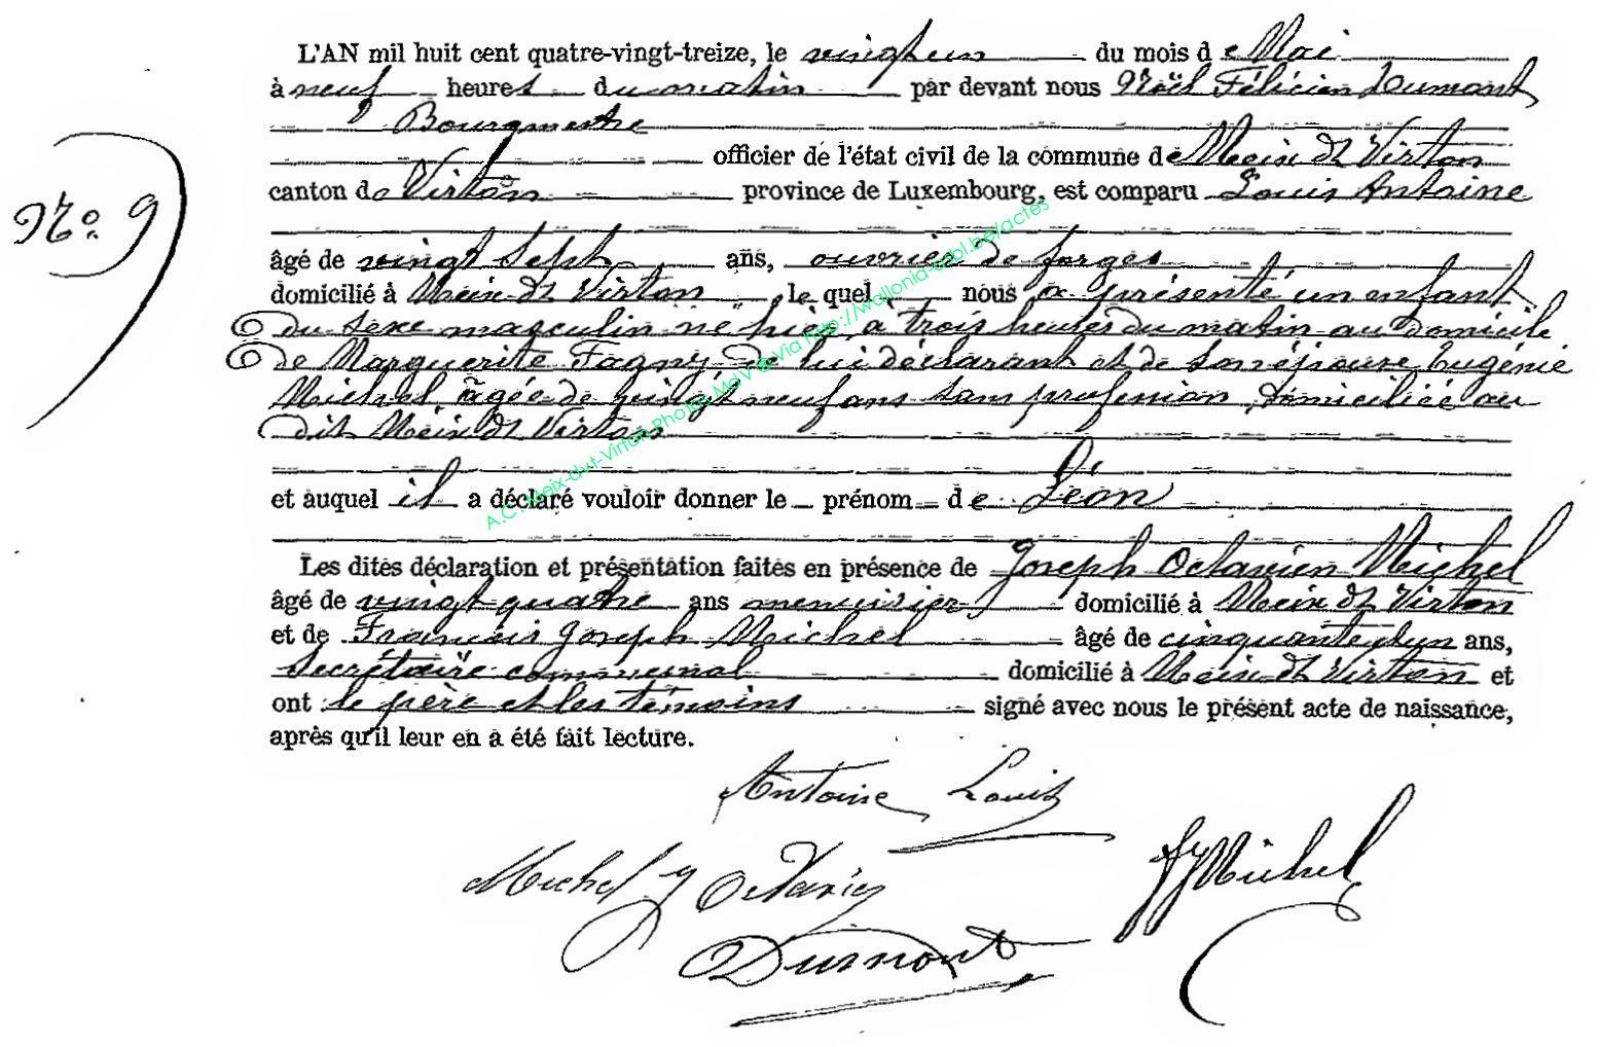 L'AN mil huit cent quatre-vingt-treize, le vingt un du mois de Mai
à neuf heures du matin par devant nous Noël Félicien Dumont
Bourgmestre
officier de l'état civil de la commune de Meix dt Virton
canton de Virton province de Luxembourg, est comparu Louis Antoine
N° 9
âgé de vingt sept ans, ouvrier de forges
domicilié à Meix dt Virton, le quel nous a présenté un enfant
du sexe masculin né hier à trois heures du matin au domicile
de Marguerite Fagny de lui déclarant et de son épouse Eugénie
Michel âgée de vingt neuf ans sans profession, domiciliée au
dit Meix dt Virton
et auquel il a déclaré vouloir donner le prénom de Léon
A.C. Meix-dvt-Virton Photos MdV @ Via http://wallonia-asbl.be/actes
Les dites déclaration et présentation faites en présence de Joseph Octavien Michel
âgé de vingt quatre ans menuisier domicilié à Meix dt Virton
et de François Joseph Michel âgé de cinquante un ans,
Secrétaire communal domicilié à Meix dt Virton et
ont le père et les témoins signé avec nous le présent acte de naissance,
après qu'il leur en a été fait lecture.
Antoine Louis
Michel J Octavien
FJMichel
Dumont